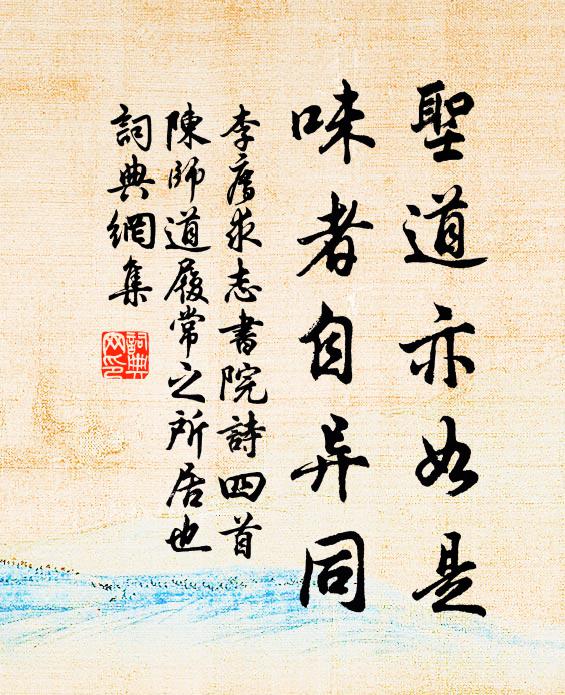 聖道亦如是
味者自异同
李廌求志書院詩四首
陳師道履常之所居也
詞典網集
詞典
网印